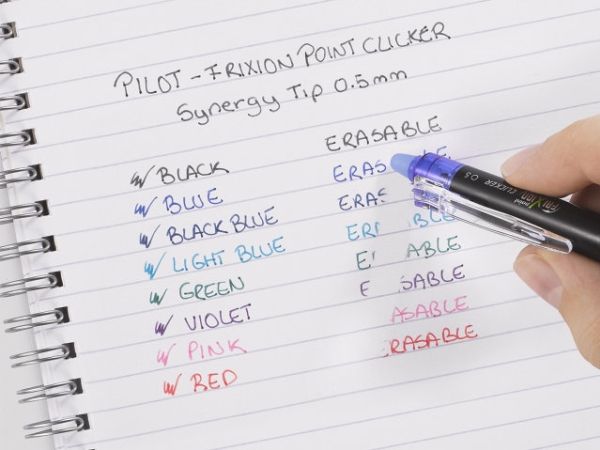 PILOT - FRIXION POINT CLICKER
Synergy Tip 0.5mm
BLACK ERASABLE
BLUE ERAS LE
BLACK BLUE ERAS
LIGHT BLUE ER BLE
GREEN E ABLE
VIOLET E SABLE
PINK ASABLE
RED ERASABLE
FriXion point CLICKER 0.5